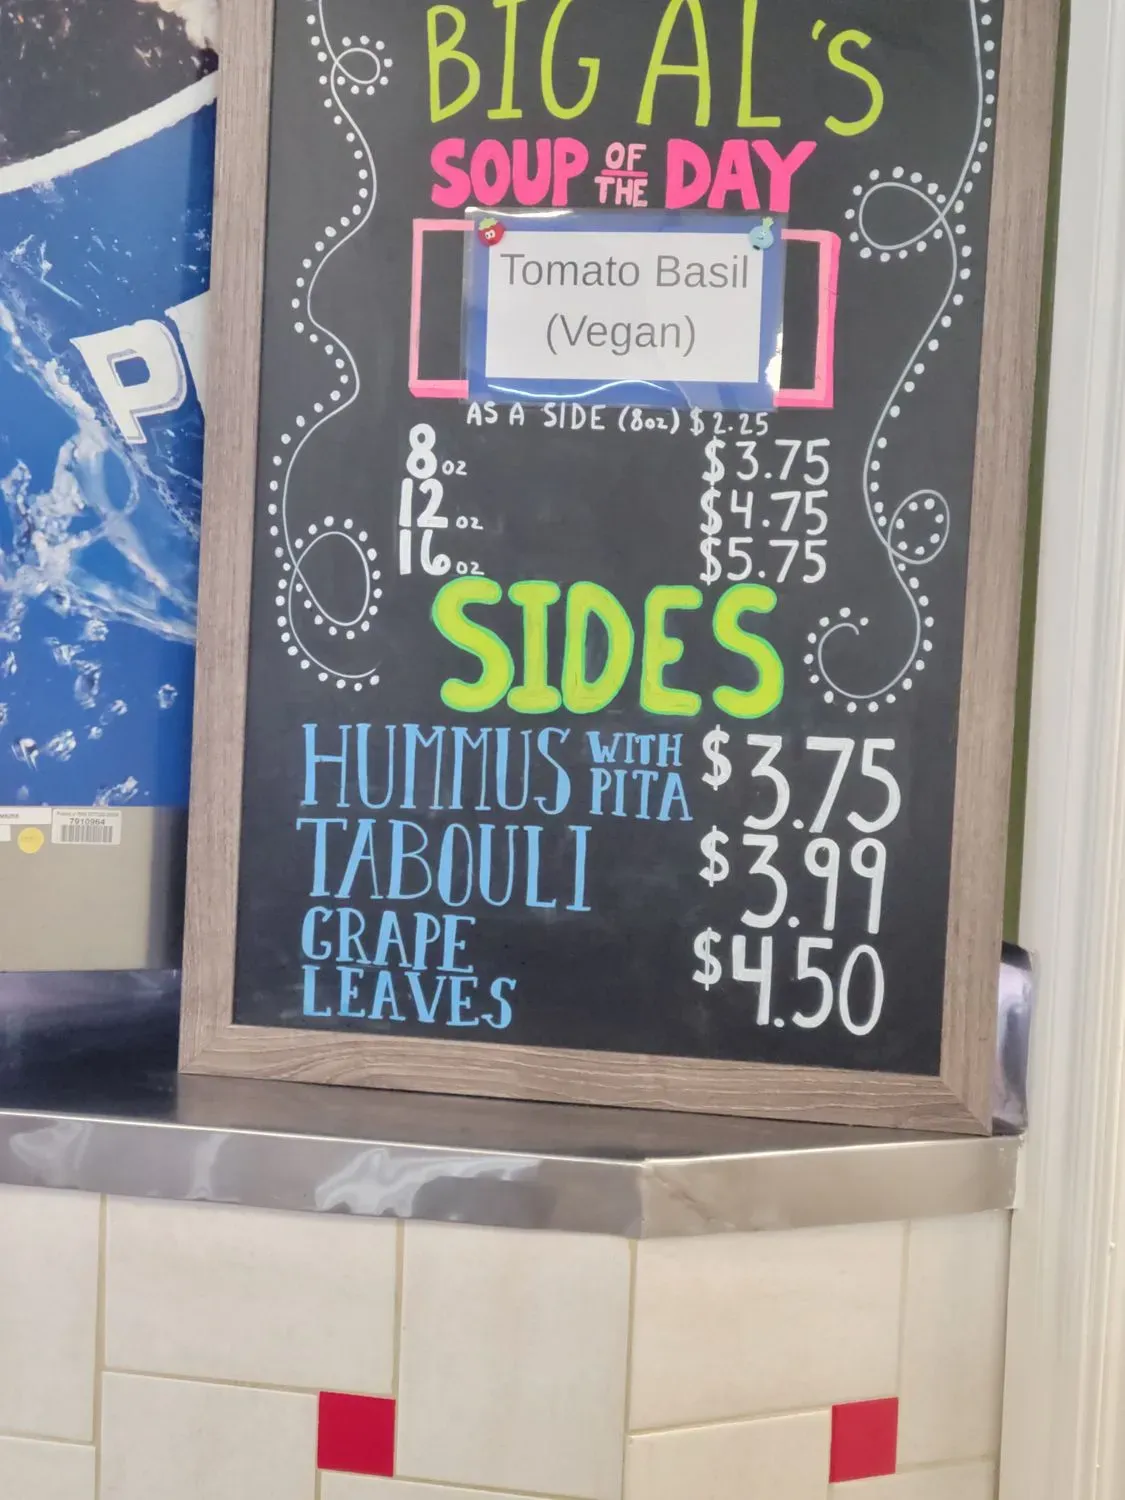 BIG AL'S
SOUP OF THE DAY
Tomato Basil
(Vegan)
AS A SIDE (8oz) $2.25
8 oz $3.75
12 oz $4.75
16 oz $5.75
SIDES
HUMMUS WITH PITA $3.75
TABOULI $3.99
GRAPE LEAVES $4.50
7910964